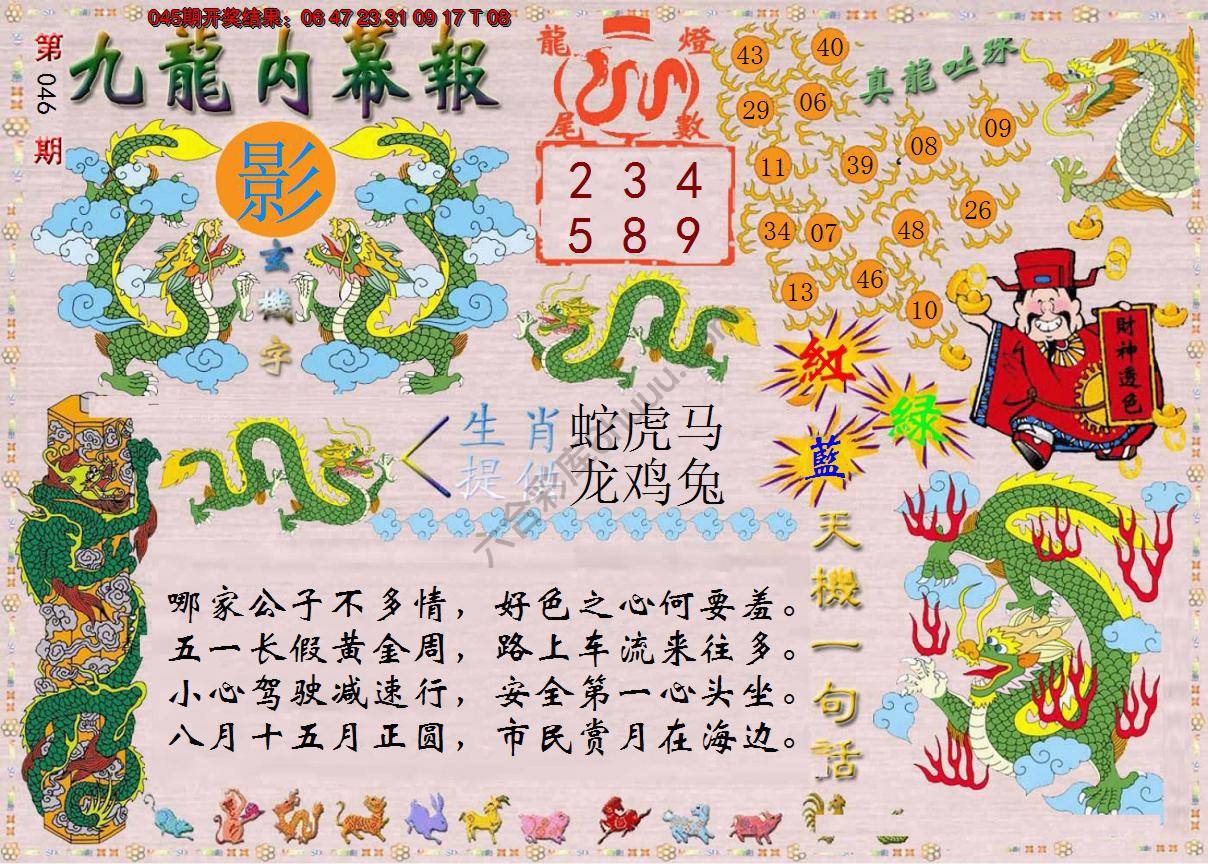 045期开奖结果：06 47 23 31 09 17 T 08
第046期
九龍内幕報
影
玄機字
龍燈
尾數
2 3 4
5 8 9
真龍吐珠
43 40
29 06
11 39 08 09
34 07 48 26
13 46 10
紅
綠
藍
財神透色
生肖 蛇虎马
提供 龙鸡兔
天機一句話
哪家公子不多情，好色之心何要羞。
五一长假黄金周，路上车流来往多。
小心驾驶减速行，安全第一心头坐。
八月十五月正圆，市民赏月在海边。